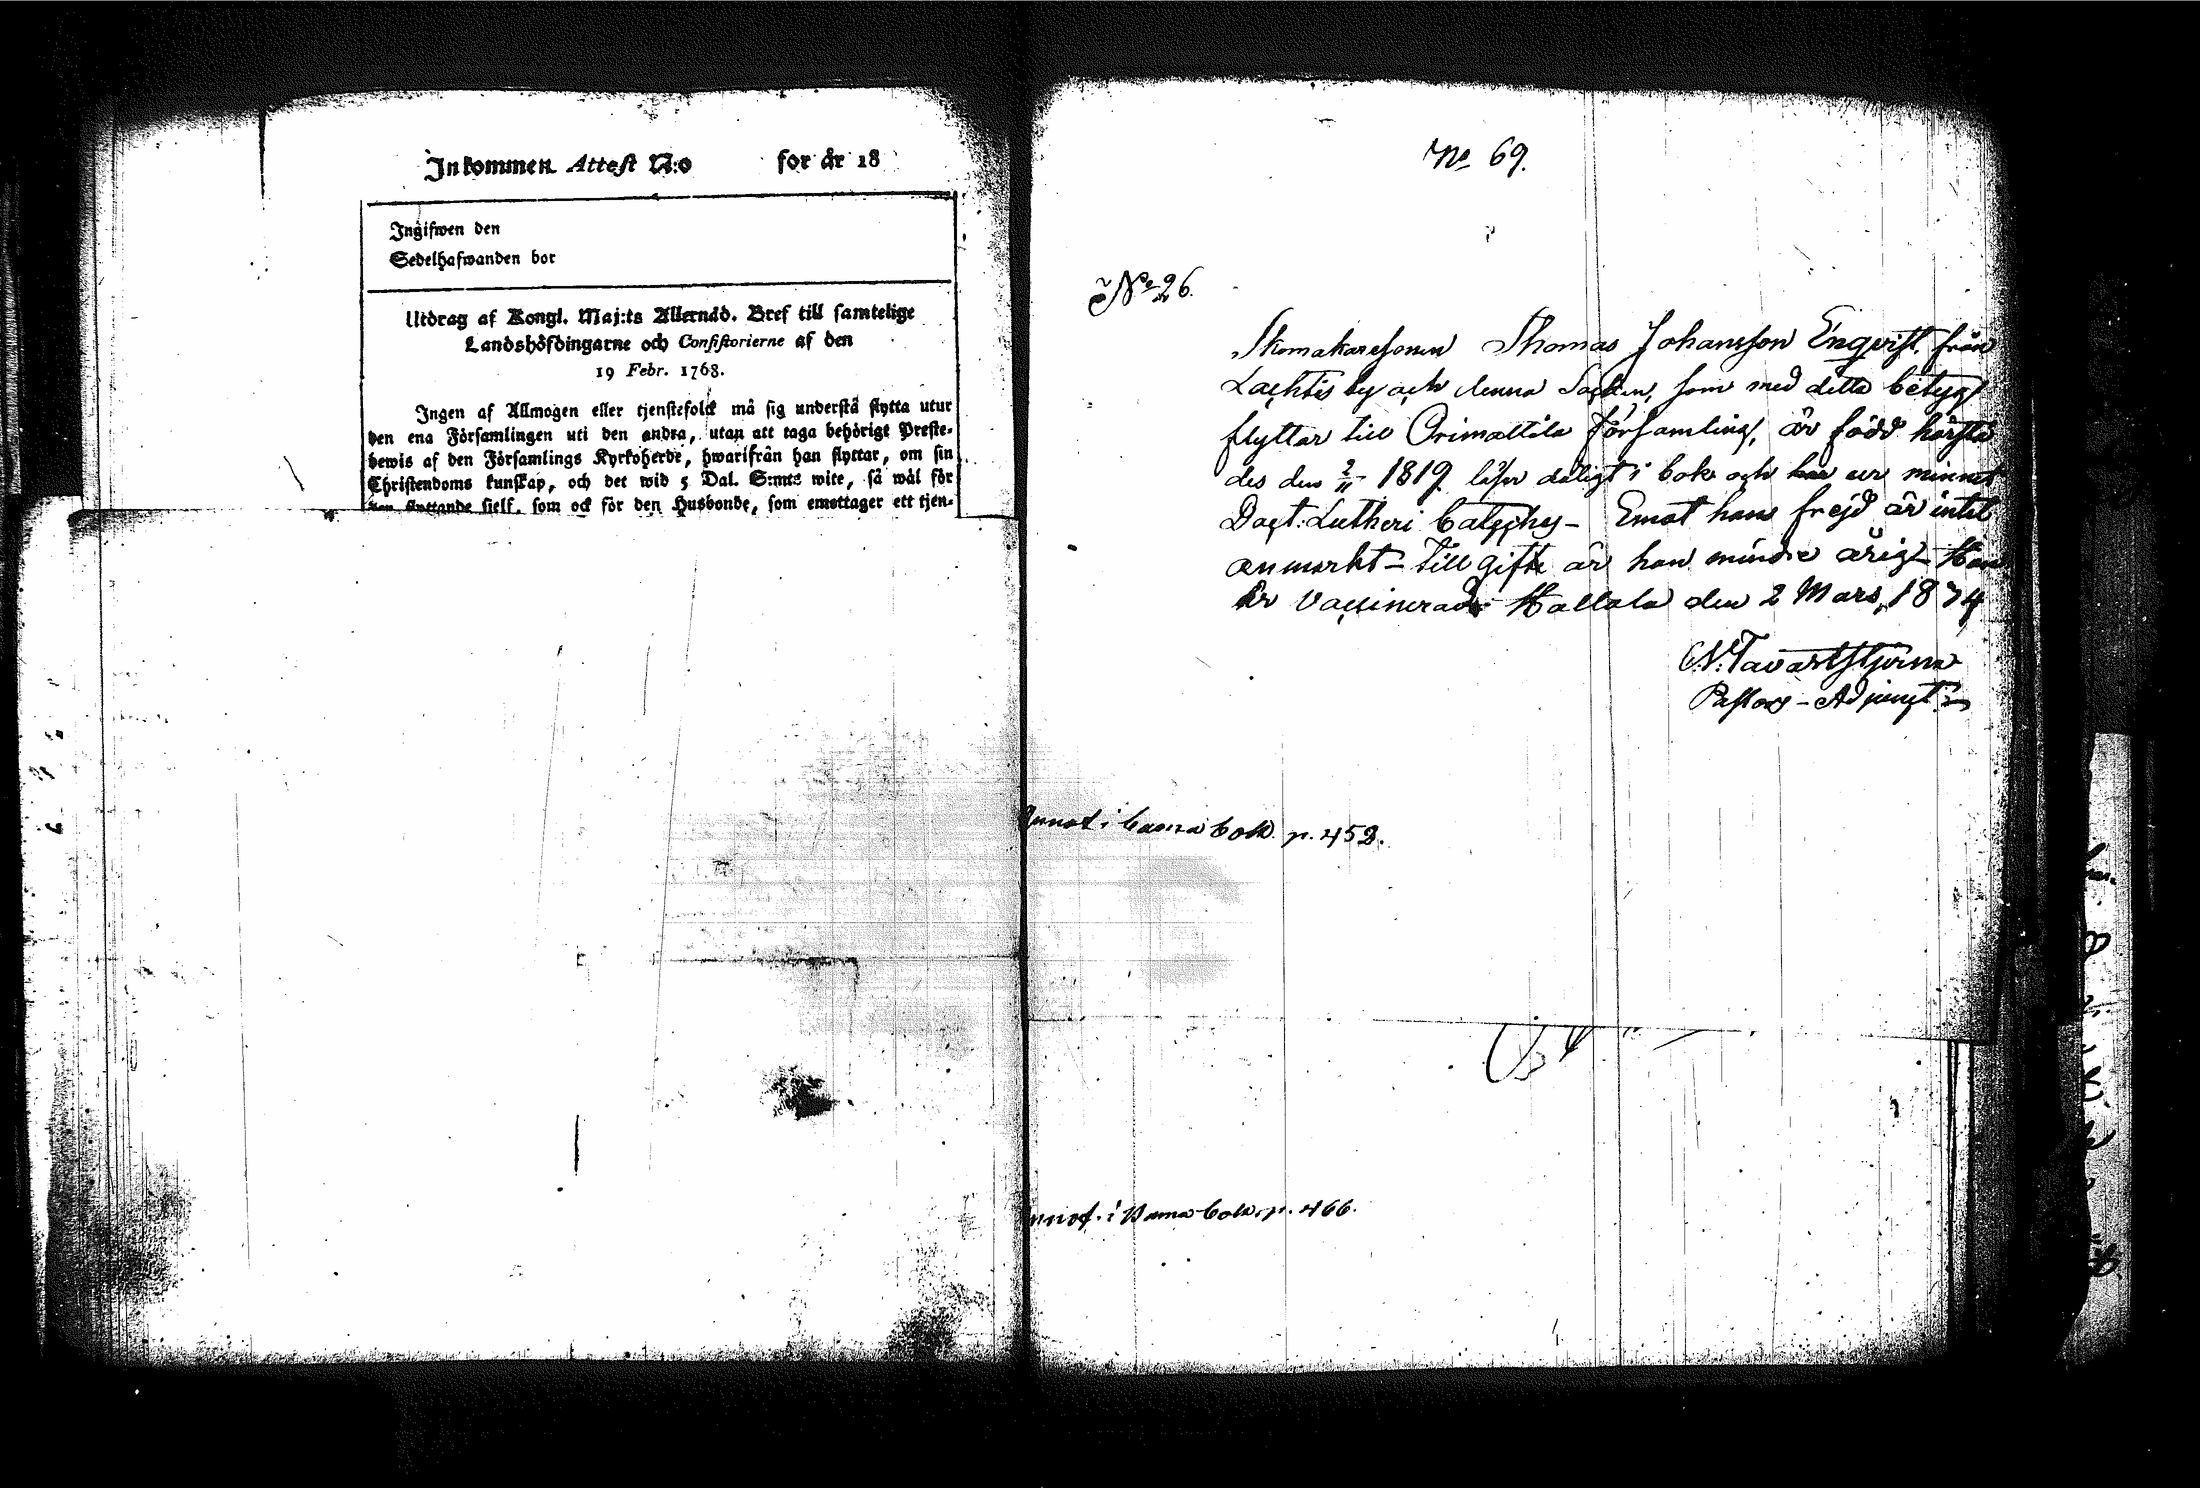 Inkommen Attest N:o for år 18
Ingifwen den
Sedelhafwanden bor
Utdrag af Kongl. Maj:ts Allernåd. Bref till samtelige
Landshöfdingarne och Consistorierne af den
19 Febr. 1768.
Ingen af Allmogen eller tjenstefolck må sig understå flytta utur
den ena Församlingen uti den andra, utan att taga behörigt Preste-
bewis af den Församlings Kyrkoherde, hwarifrån han flyttar, om sin
Christendoms kunskap, och det wid 5 Dal. S:mts wite, så wäl för
den flyttande sielf, som ock för den Husbonde, som emottager ett tjen-
No 69.
No 26.
Skomakaresonen Thomas Johansson Engqvist, från
Lachtis by och denna Socken, som med detta betyg
flyttar till Orimattila Församling, är född härstä
des den 2/11 1819 läser dåligt i bok och har ur minnet
Doct: Lutheri Catechs- Emot hans frejd är intet
anmärkt - till gifte är han mindre ärig - Han
är Vaccinerad - Hollola den 2 Mars, 1874
N. Tavaststjerna
Pastors-Adjunct
Annot i barna bok p. 452.
annot. i Barna bok. p. 466.